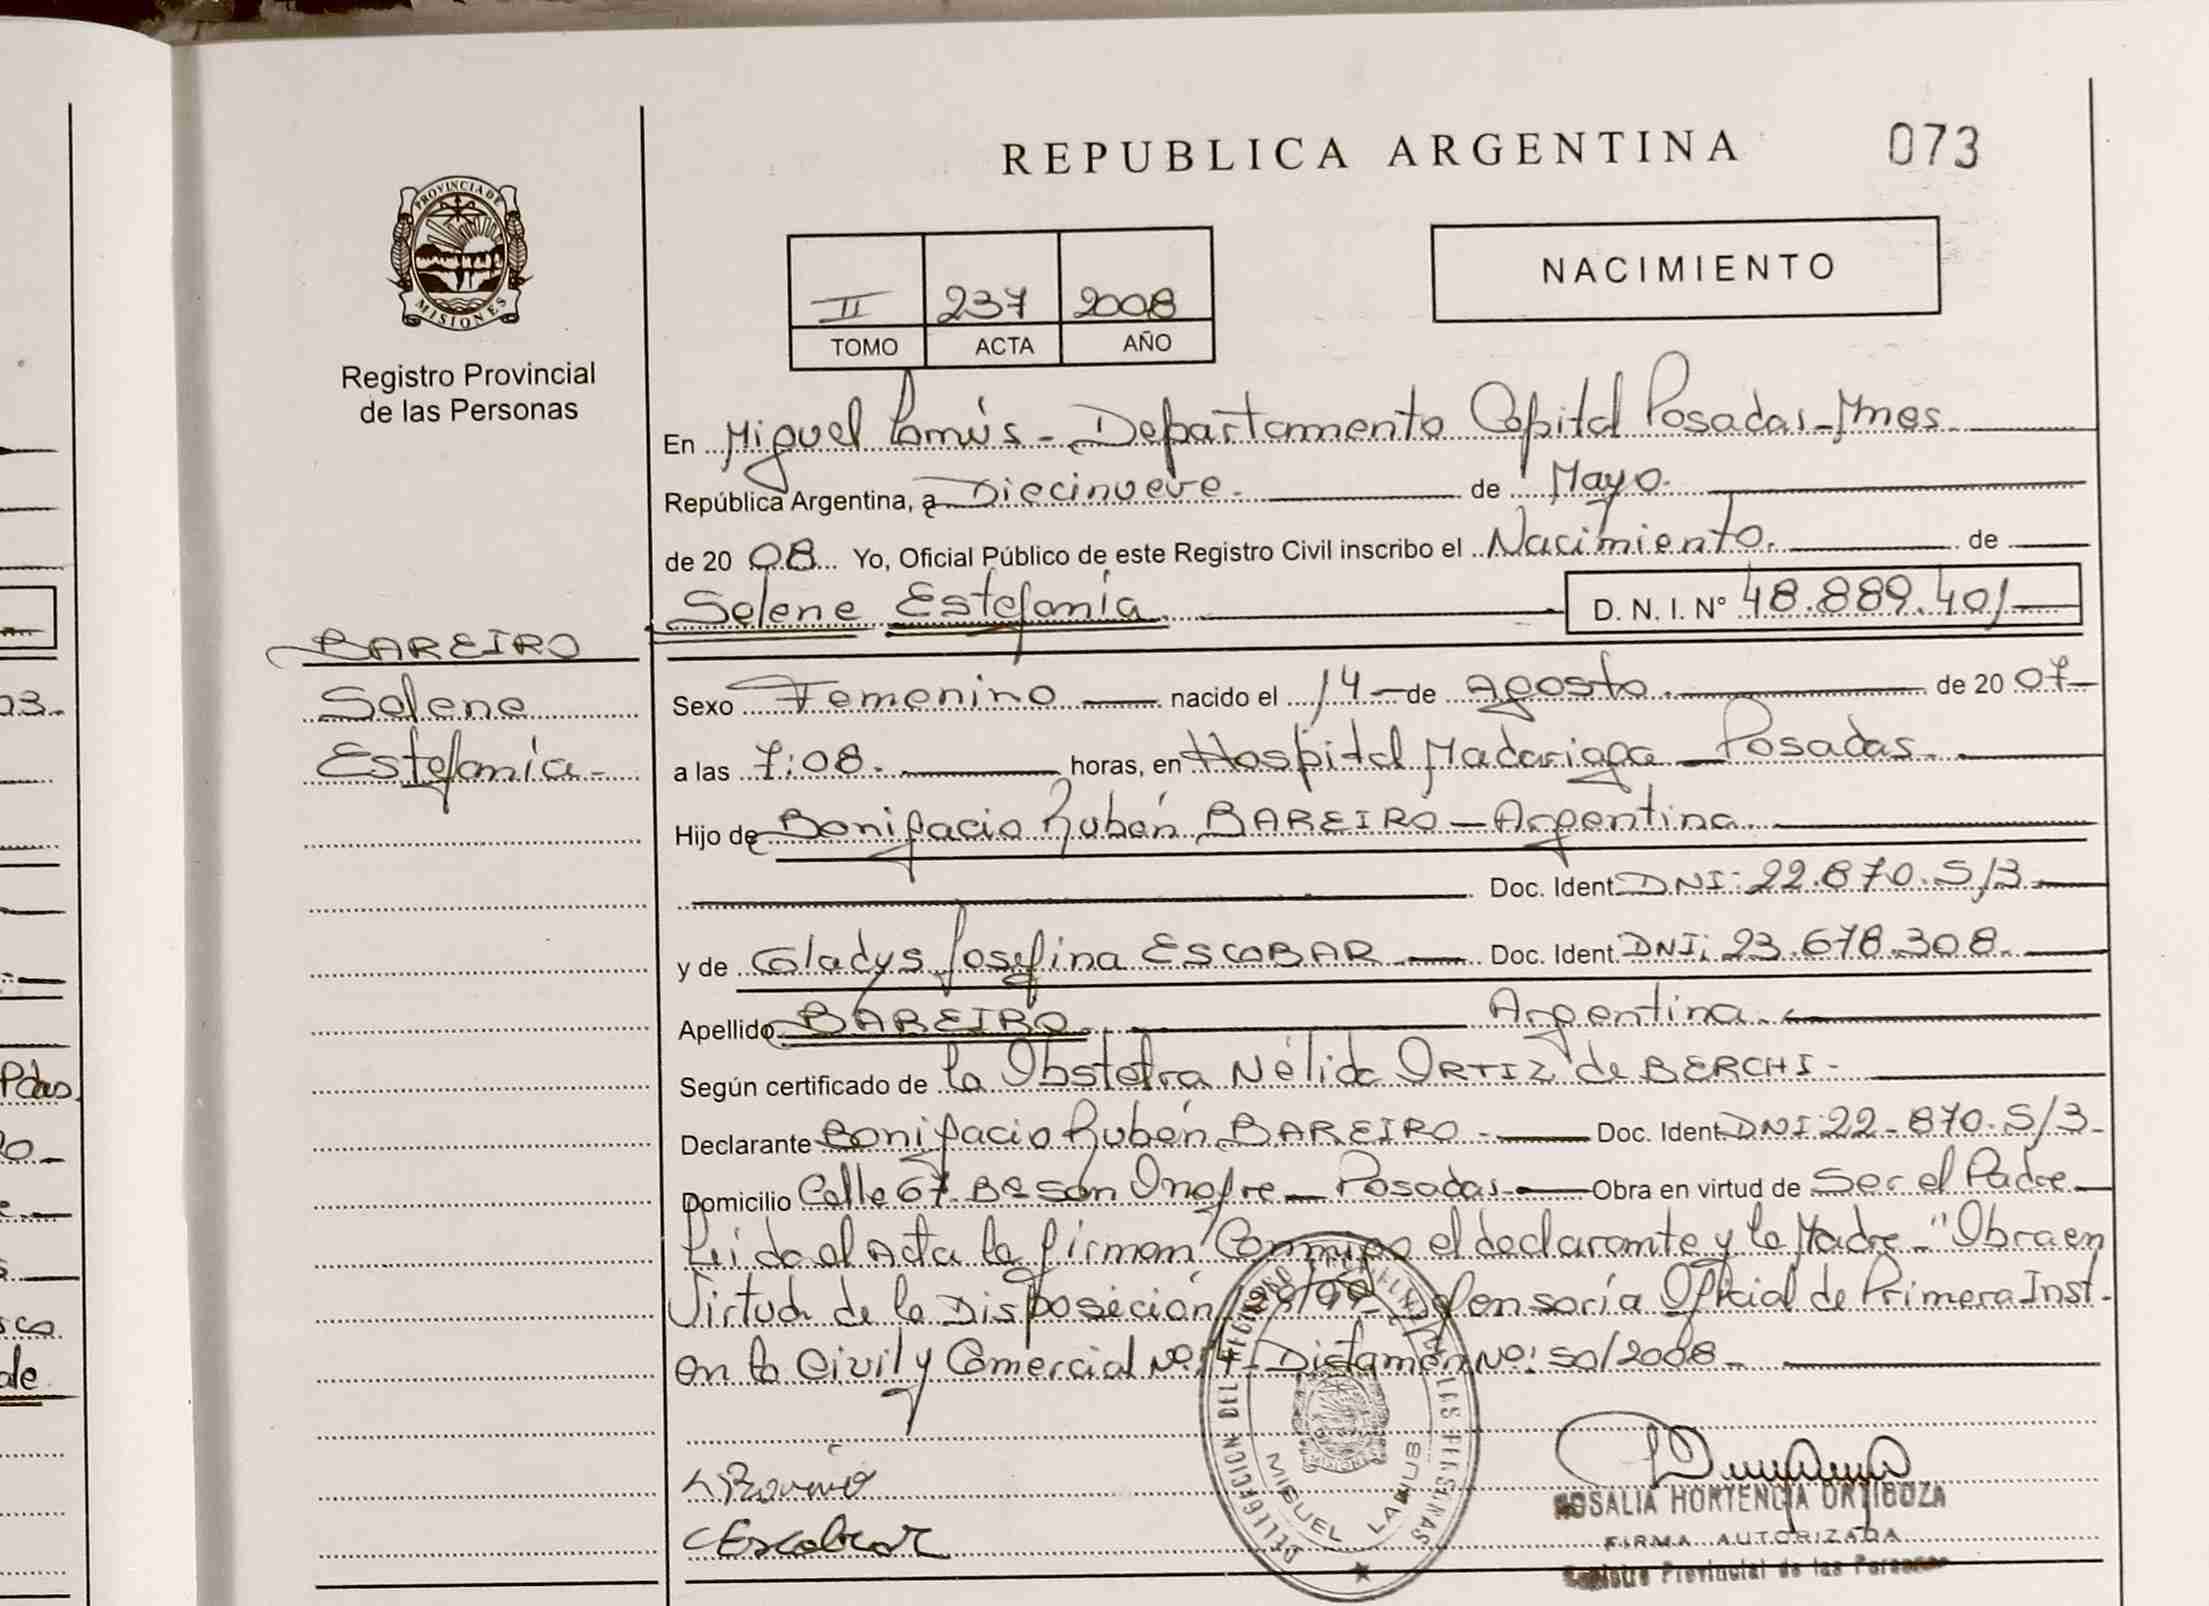 REPUBLICA ARGENTINA
073
PROVINCIA DE
MISIONES
Registro Provincial
de las Personas
II 237 2008
TOMO ACTA AÑO
NACIMIENTO
En Miguel Lanús - Departamento Capital Posadas - Mnes
República Argentina, a Diecinueve. de Mayo.
de 20 08 Yo, Oficial Público de este Registro Civil inscribo el Nacimiento. de
Selene Estefanía. D. N. I. N° 48.889.401
BAREIRO
Selene
Estefanía -
Sexo Femenino nacido el 14 - de Agosto. de 20 07
a las 7:08. horas, en Hospital Madariaga - Posadas.
Hijo de Bonifacio Rubén BAREIRO - Argentina.
Doc. Ident. DNI: 22.870.513
y de Gladys Josefina ESCOBAR Doc. Ident. DNI: 23.678.308.
Apellido BAREIRO. Argentina.
Según certificado de la Obstetra Nélida ORTIZ de BERCHI -
Declarante Bonifacio Rubén BAREIRO - Doc. Ident. DNI: 22-870.513
Domicilio Calle 67 Bº San Onofre - Posadas - Obra en virtud de Ser el Padre
Leido el Acta la firman Conmigo el declarante y la Madre - "Obra en
Virtud de la Disposición Defensoría Oficial de Primera Inst.
en lo Civil y Comercial Nº: 4 - Dictamen Nº: 50/2008 -
Escobar
MIGUEL LANUS
ROSALIA HORTENCIA ORTIGOZA
FIRMA AUTORIZADA
Registro Provincial de las Personas
03.
Pdas.
de